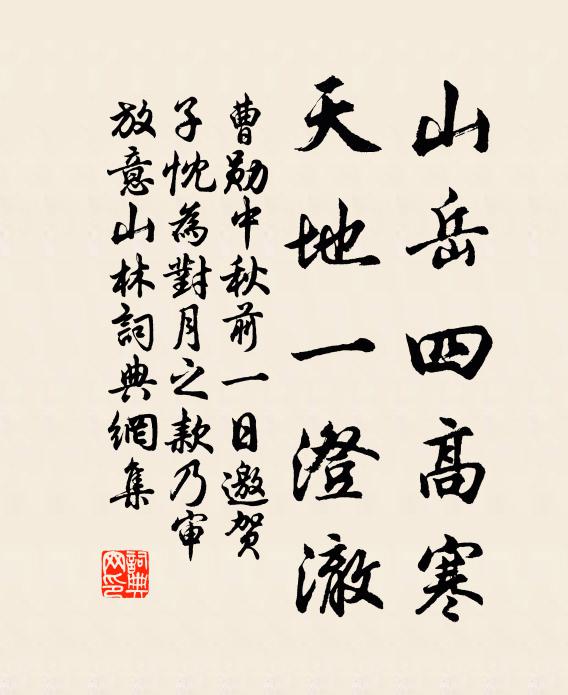 山岳四高寒
天地一澄澈
曹勋中秋前一日邀贺
子忱為對月之款乃审
放意山林詞典網集
詞典网印